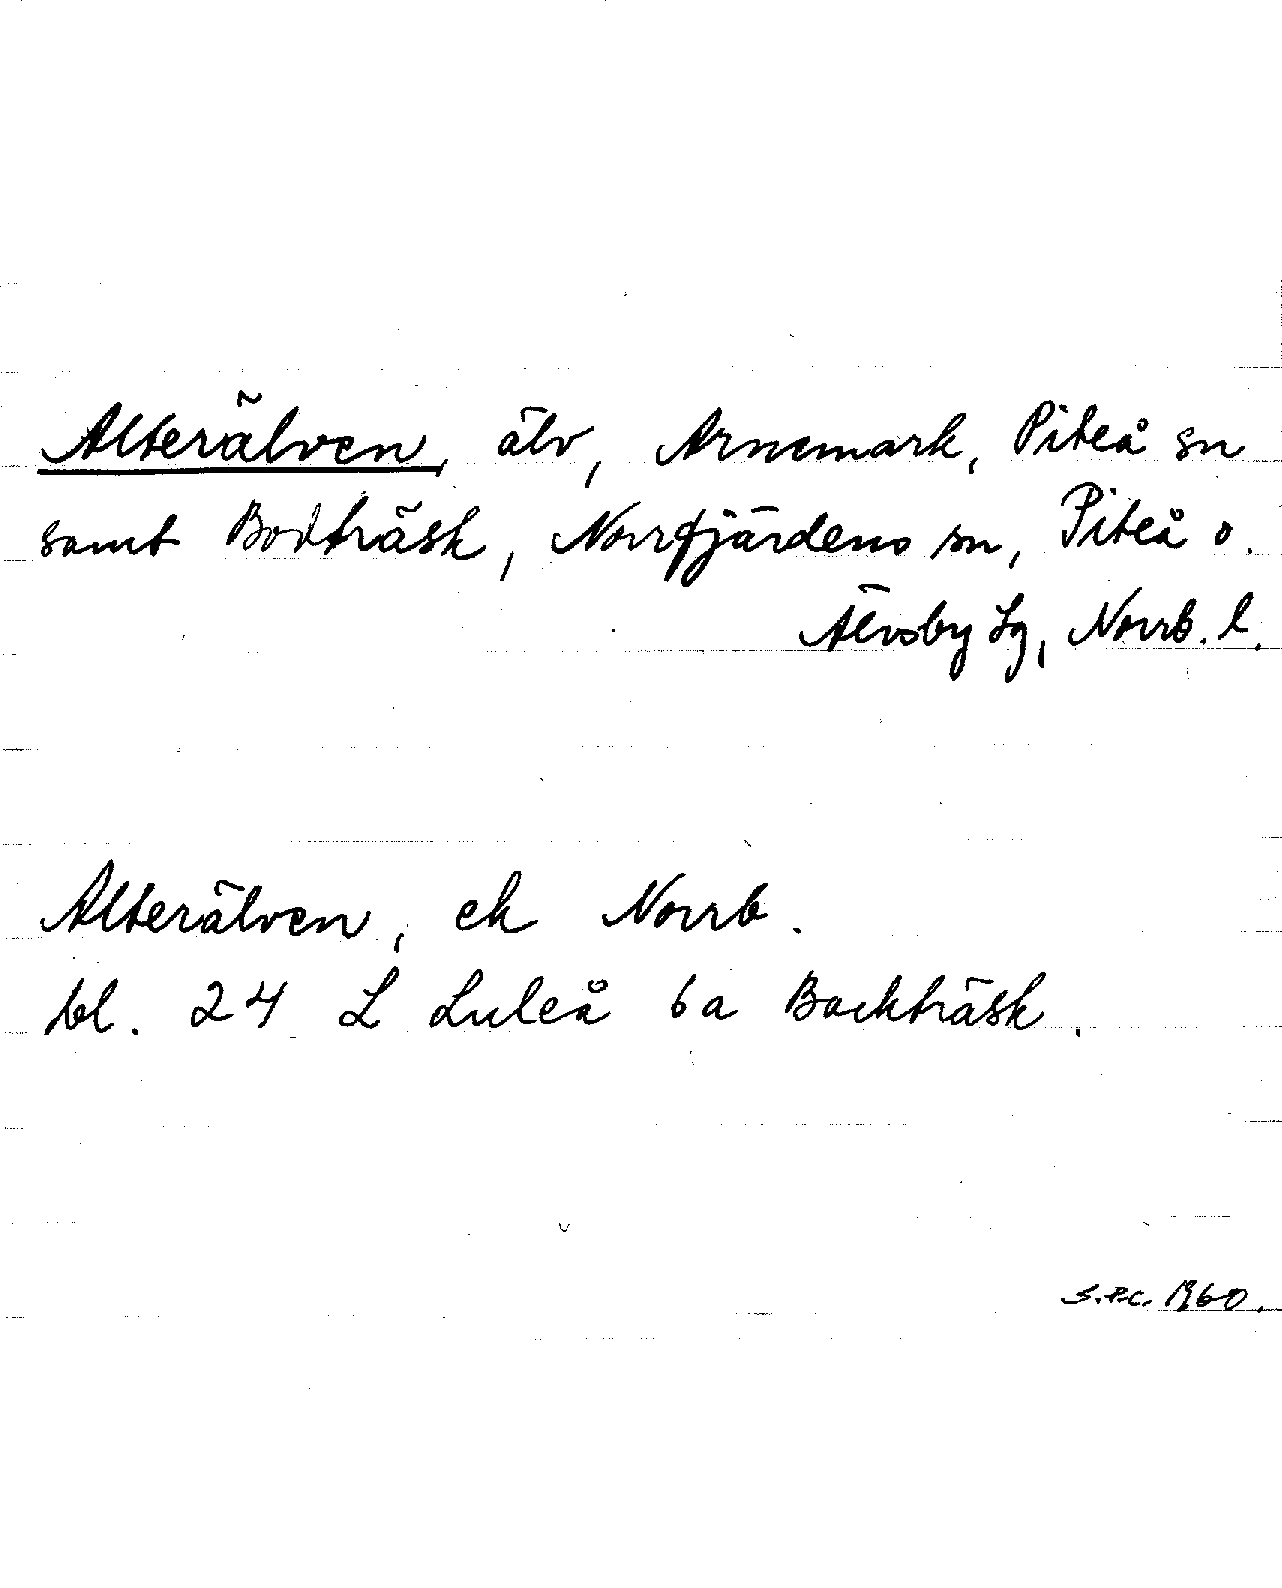 Alterälven, älv, Arnemark, Piteå sn
samt Bodträsk, Norrfjärdens sn, Piteå o.
Älvsby tg, Norrb. l.
Alterälven, ek Norrb.
bl. 24 L Luleå 6a Backträsk.
S.P.C. 1960.